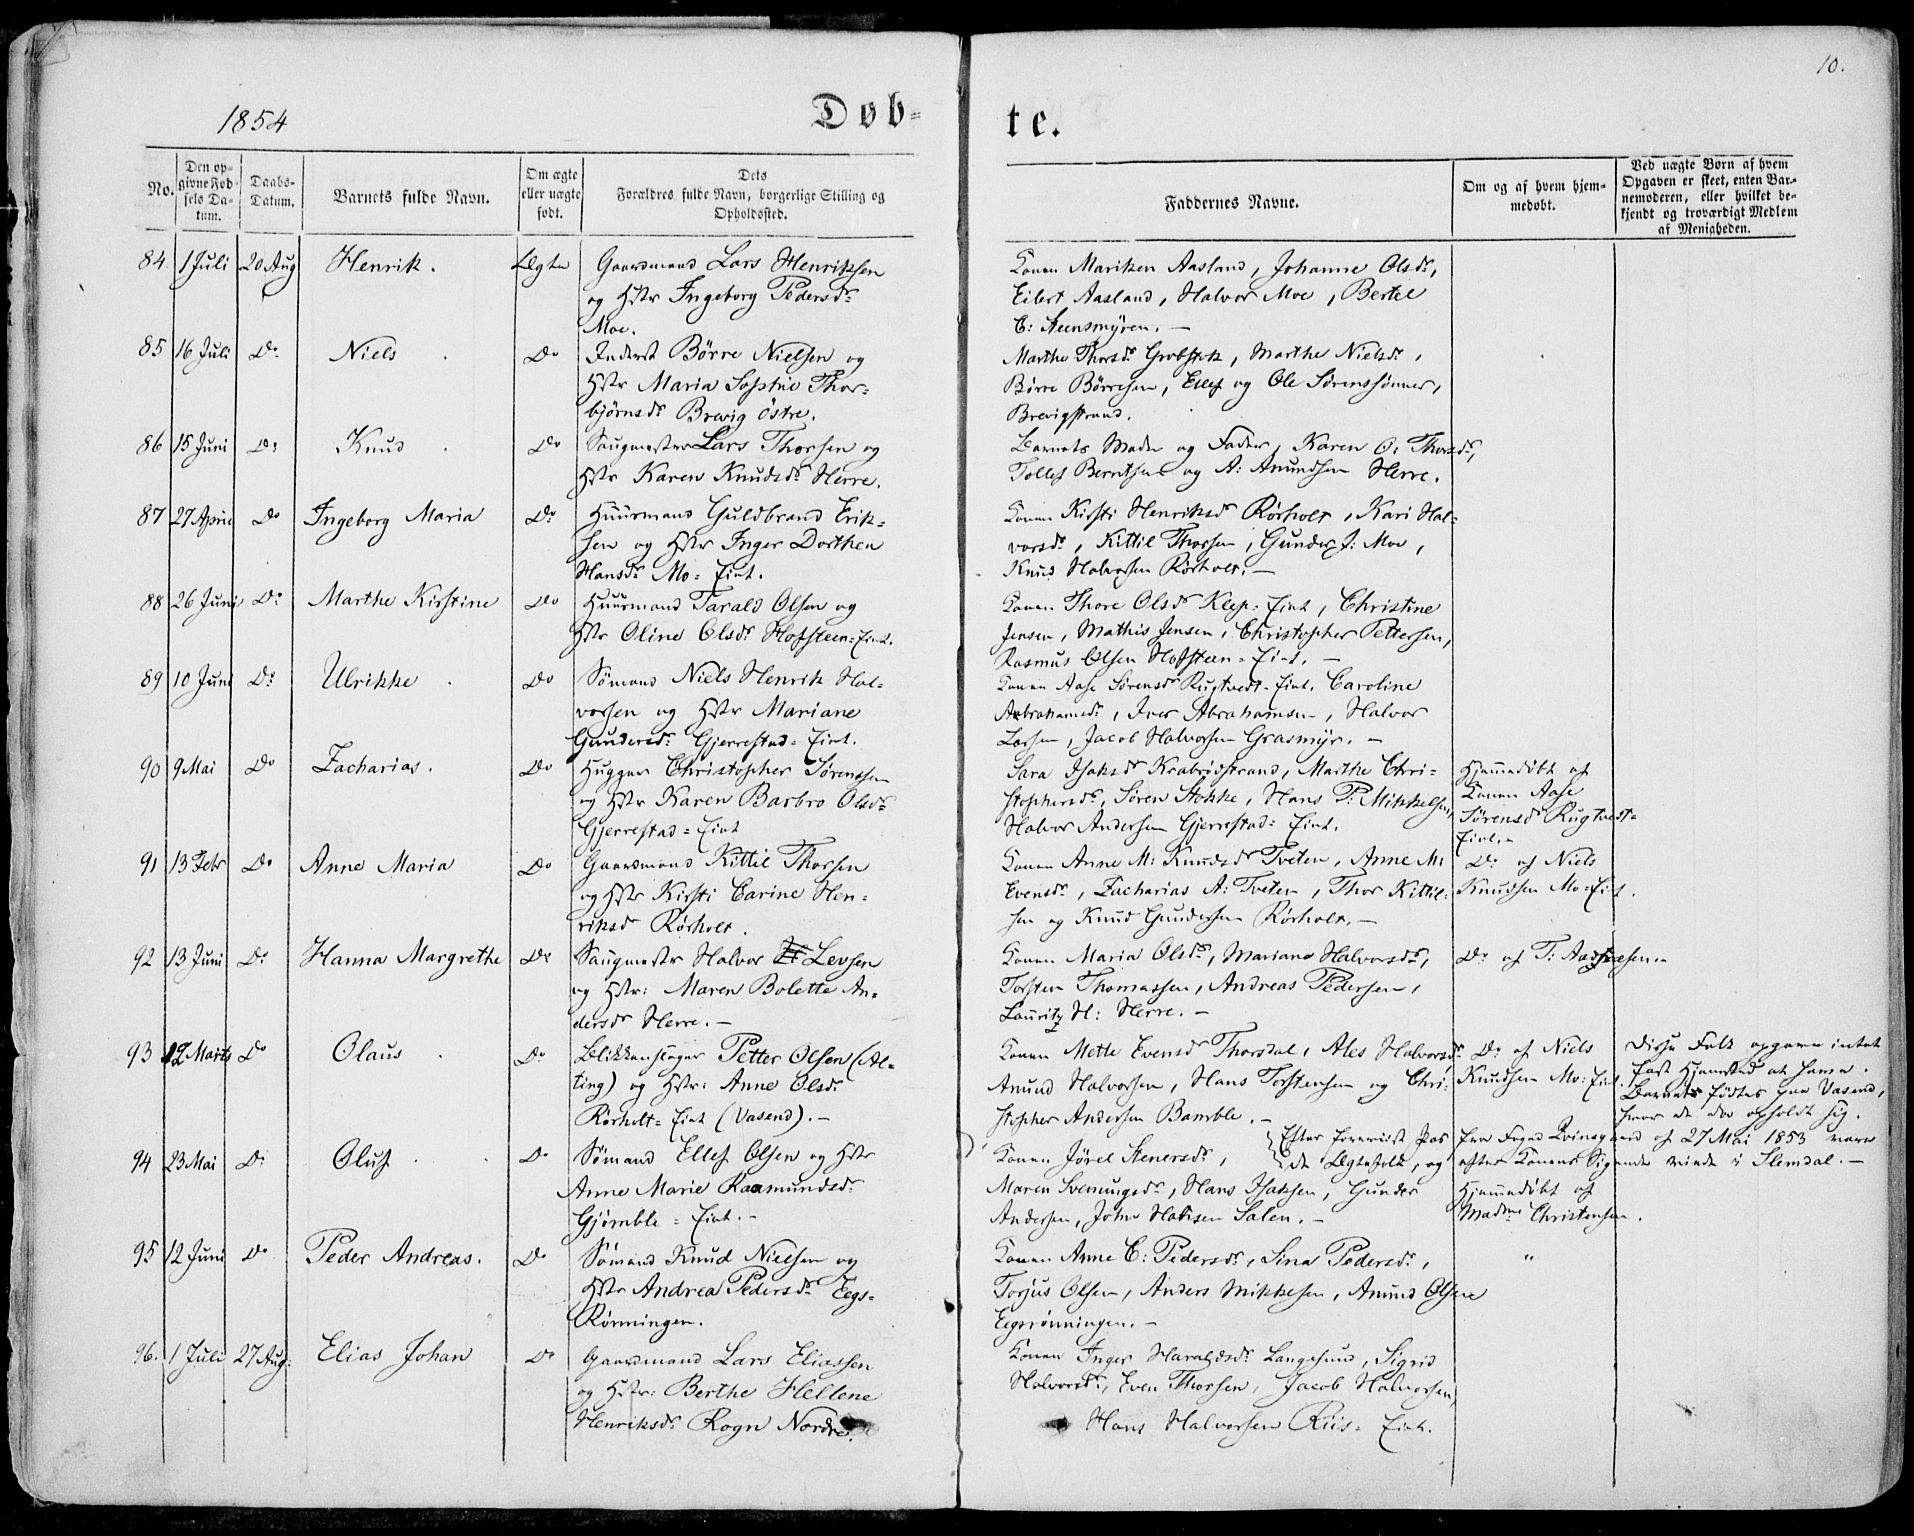 10.
1854
Døb-
te.
No.
Den op-
givne Fød-
sels Da-
tum.
Daabs-
Datum.
Barnets fulde Navn.
Om ægte
eller uægte
født.
Dets
Forældres fulde Navn, borgerlige Stilling og
Opholdssted.
Faddernes Navne.
Om og af hvem hjem-
medøbt.
Ved uægte Børn af hvem
Opgaven er skeet, enten Bar-
nemoderen, eller hvilket be-
kjendt og troværdigt Medlem
af Menigheden.
84 1 Juli 20 Aug Henrik. Ægte
Gaardmand Lars Henriksen
og Hstr Ingeborg Pedersdr
Moe.
Konen Mariken Aasland, Johanne Olsdr,
Eilert Aasland, Halvor Moe, Bertel
C: Steensmyren. —
85 16 Juli Do Niels Do
Inderst Börre Nielsen og
Hstr Maria Sophie Thor-
björnsdr Brevig östre.
Marthe Thorsdr Grobstok, Marthe Nielsdr,
Börre Börresen, Ellef og Ole Sörenssönner,
Brevigstrand.
86 15 Juni Do Knud Do
Saugmester Lars Thorsen og
Hstr Karen Knudsdr Herre.
Barnets Moder og Fader, Karen O: Thorsdr,
Tollef Berntsen og A: Amundsen Herre.
87 27 April Do Ingeborg Maria Do
Huusmand Guldbrand Erik-
sen og Hstr Inger Dorthea
Hansdr Mo-Eiet.
Konen Kirsti Henriksdr Rörholt, Kari Hal-
vorsdr, Kittil Thorsen, Gunder J: Moe,
Knud Halvorsen Rörholt. —
88 26 Juni Do Marthe Kirstine Do
Huusmand Tarald Olsen og
Hstr Oline Olsdr Hofsteen-Eiet.
Konen Thore Olsdr Klep-Eiet, Christine
Jensen, Mathis Jensen, Christopher Pettersen,
Rasmus Olsen Hofsteen-Eiet. —
89 10 Juni Do Ulrikke Do
Sömand Niels Henrik Hal-
vorsen og Hstr Mariane
Gundersdr Gjerrestad-Eiet.
Konen Aase Sörensdr Rugtvedt-Eiet, Caroline
Abrahamsdr, Iver Abrahamsen, Halvor
Larsen, Jacob Halvorsen Grasmyr. —
90 9 Mai Do Zacharias. Do
Hugger Christopher Sörensen
og Hstr Karen Barbro Olsdr
Gjerrestad-Eiet
Sara Isaksdr Krabrödstrand, Marthe Chri-
stophersdr, Sören Stokke, Hans P: Mikkelsen,
Halvor Andersen Gjerrestad-Eiet.
Hjemmedöbt af
Konen Aase
Sörensd Rugtvedt-
Eiet.
91 13 Febr Do Anne Maria Do
Gaardmand Kittil Thorsen
og Hstr Kirsti Carine Hen-
riksdr Rörholt.
Konen Anne M: Knudsdr Tveten, Anne M:
Evensdr, Zacharias A: Tveten, Thor Kittil-
sen og Knud Gundersen Rörholt. —
Do af Niels
Knudsen Mo-Eiet.
92 13 Juni Do Hanna Margrethe Do
Saugmester Halvor Levsen
og Hstr: Maren Bolette An-
dersdr Herre. —
Konen Maria Olsdr, Mariane Halvorsdr,
Torsten Thomassen, Andreas Pedersen,
Lauritz H: Herre. —
Do af T:
93 12 Marts Do Olaus Do
Blikkenslager Petter Olsen (Al-
ting) og Hstr: Anne Olsdr
Rörholt-Eiet (Vasend). —
Konen Mette Evensd Thorsdal, Ales Halvorsdr
Amund Halvorsen, Hans Torstensen og Chri-
stopher Andersen Bamble. —
Do af Niels
Knudsen Mo-Eiet.
Disse Folk opgave intet
fast Hjemsted at have.
Barnet födtes paa Vasend,
hvor de da opholdt sig.
Efter foreviist Pas fra Foged Qvinsgaard af 27 Mai 1853 vare
de Ægtefolk, og efter Konens Sigende viede i Slemdal. —
94 23 Mai Do Oluf Do
Sömand Ellef Olsen og Hstr
Anne Marie Raamundsdr
Gjömble-Eiet. —
Konen Jörel Stenersdr,
Maren Svenungsdr, Hans Isaksen, Gunder
Andersen, John Hansen Salen. —
Hjemmedöbt af
Madme Christensen.
95 12 Juni Do Peder Andreas. Do
Sömand Knud Nielsen og
Hstr Andrea Pedersdr Eegs-
Rönningen.
Konen Anne C: Pedersdr, Sina Pedersdr,
Torjus Olsen, Anders Mikkelsen, Amund Olsen
Eegsrönningen. —
"
96. 1 Juli 27 Aug: Elias Johan Do
Gaardmand Lars Eliassen
og Hstr: Berthe Hellene
Henriksdr Rogn Nordre.
Konen Inger Haraldsdr Langesund, Sigrid
Halvorsdr, Even Thorsen, Jacob Halvorsen,
Hans Halvorsen Riis-Eiet.